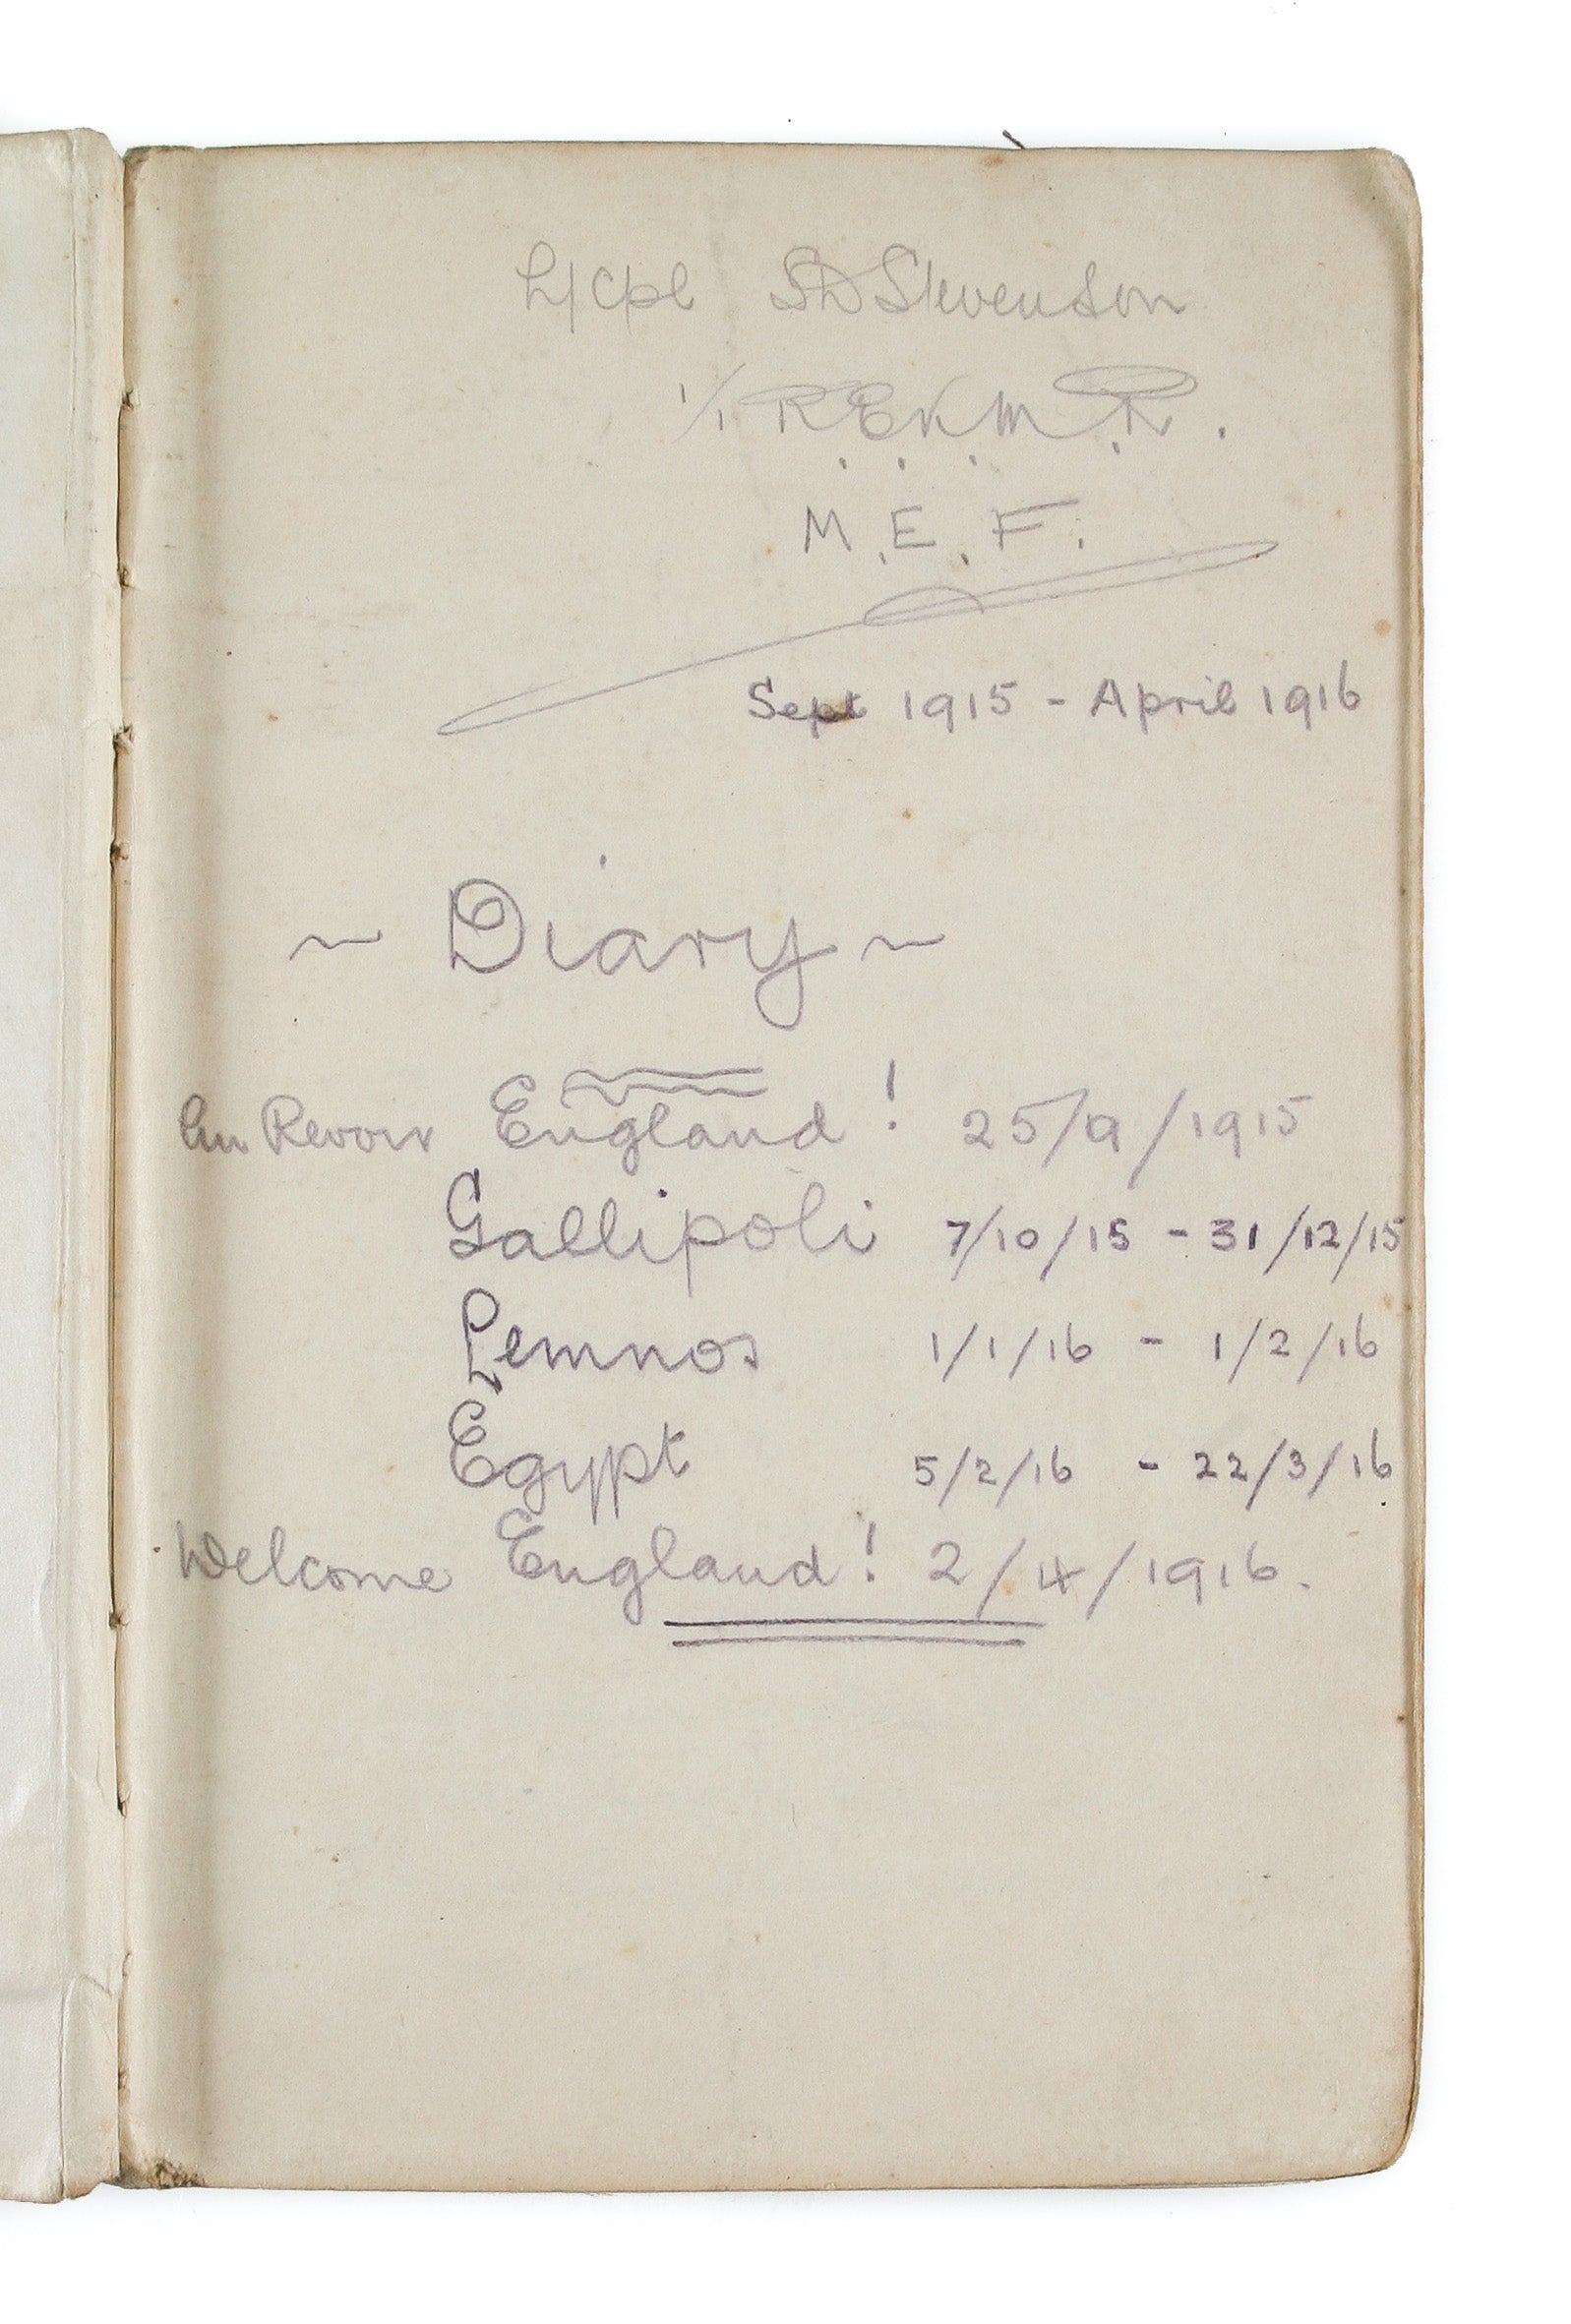 L/Cpl SD Stevenson
1/1 R.E.K.M.R.
M.E.F.
Sept 1915 - April 1916
~ Diary ~
Au Revoir England! 25/9/1915
Gallipoli 7/10/15 - 31/12/15
Lemnos 1/1/16 - 1/2/16
Egypt 5/2/16 - 22/3/16
Welcome England! 2/4/1916.